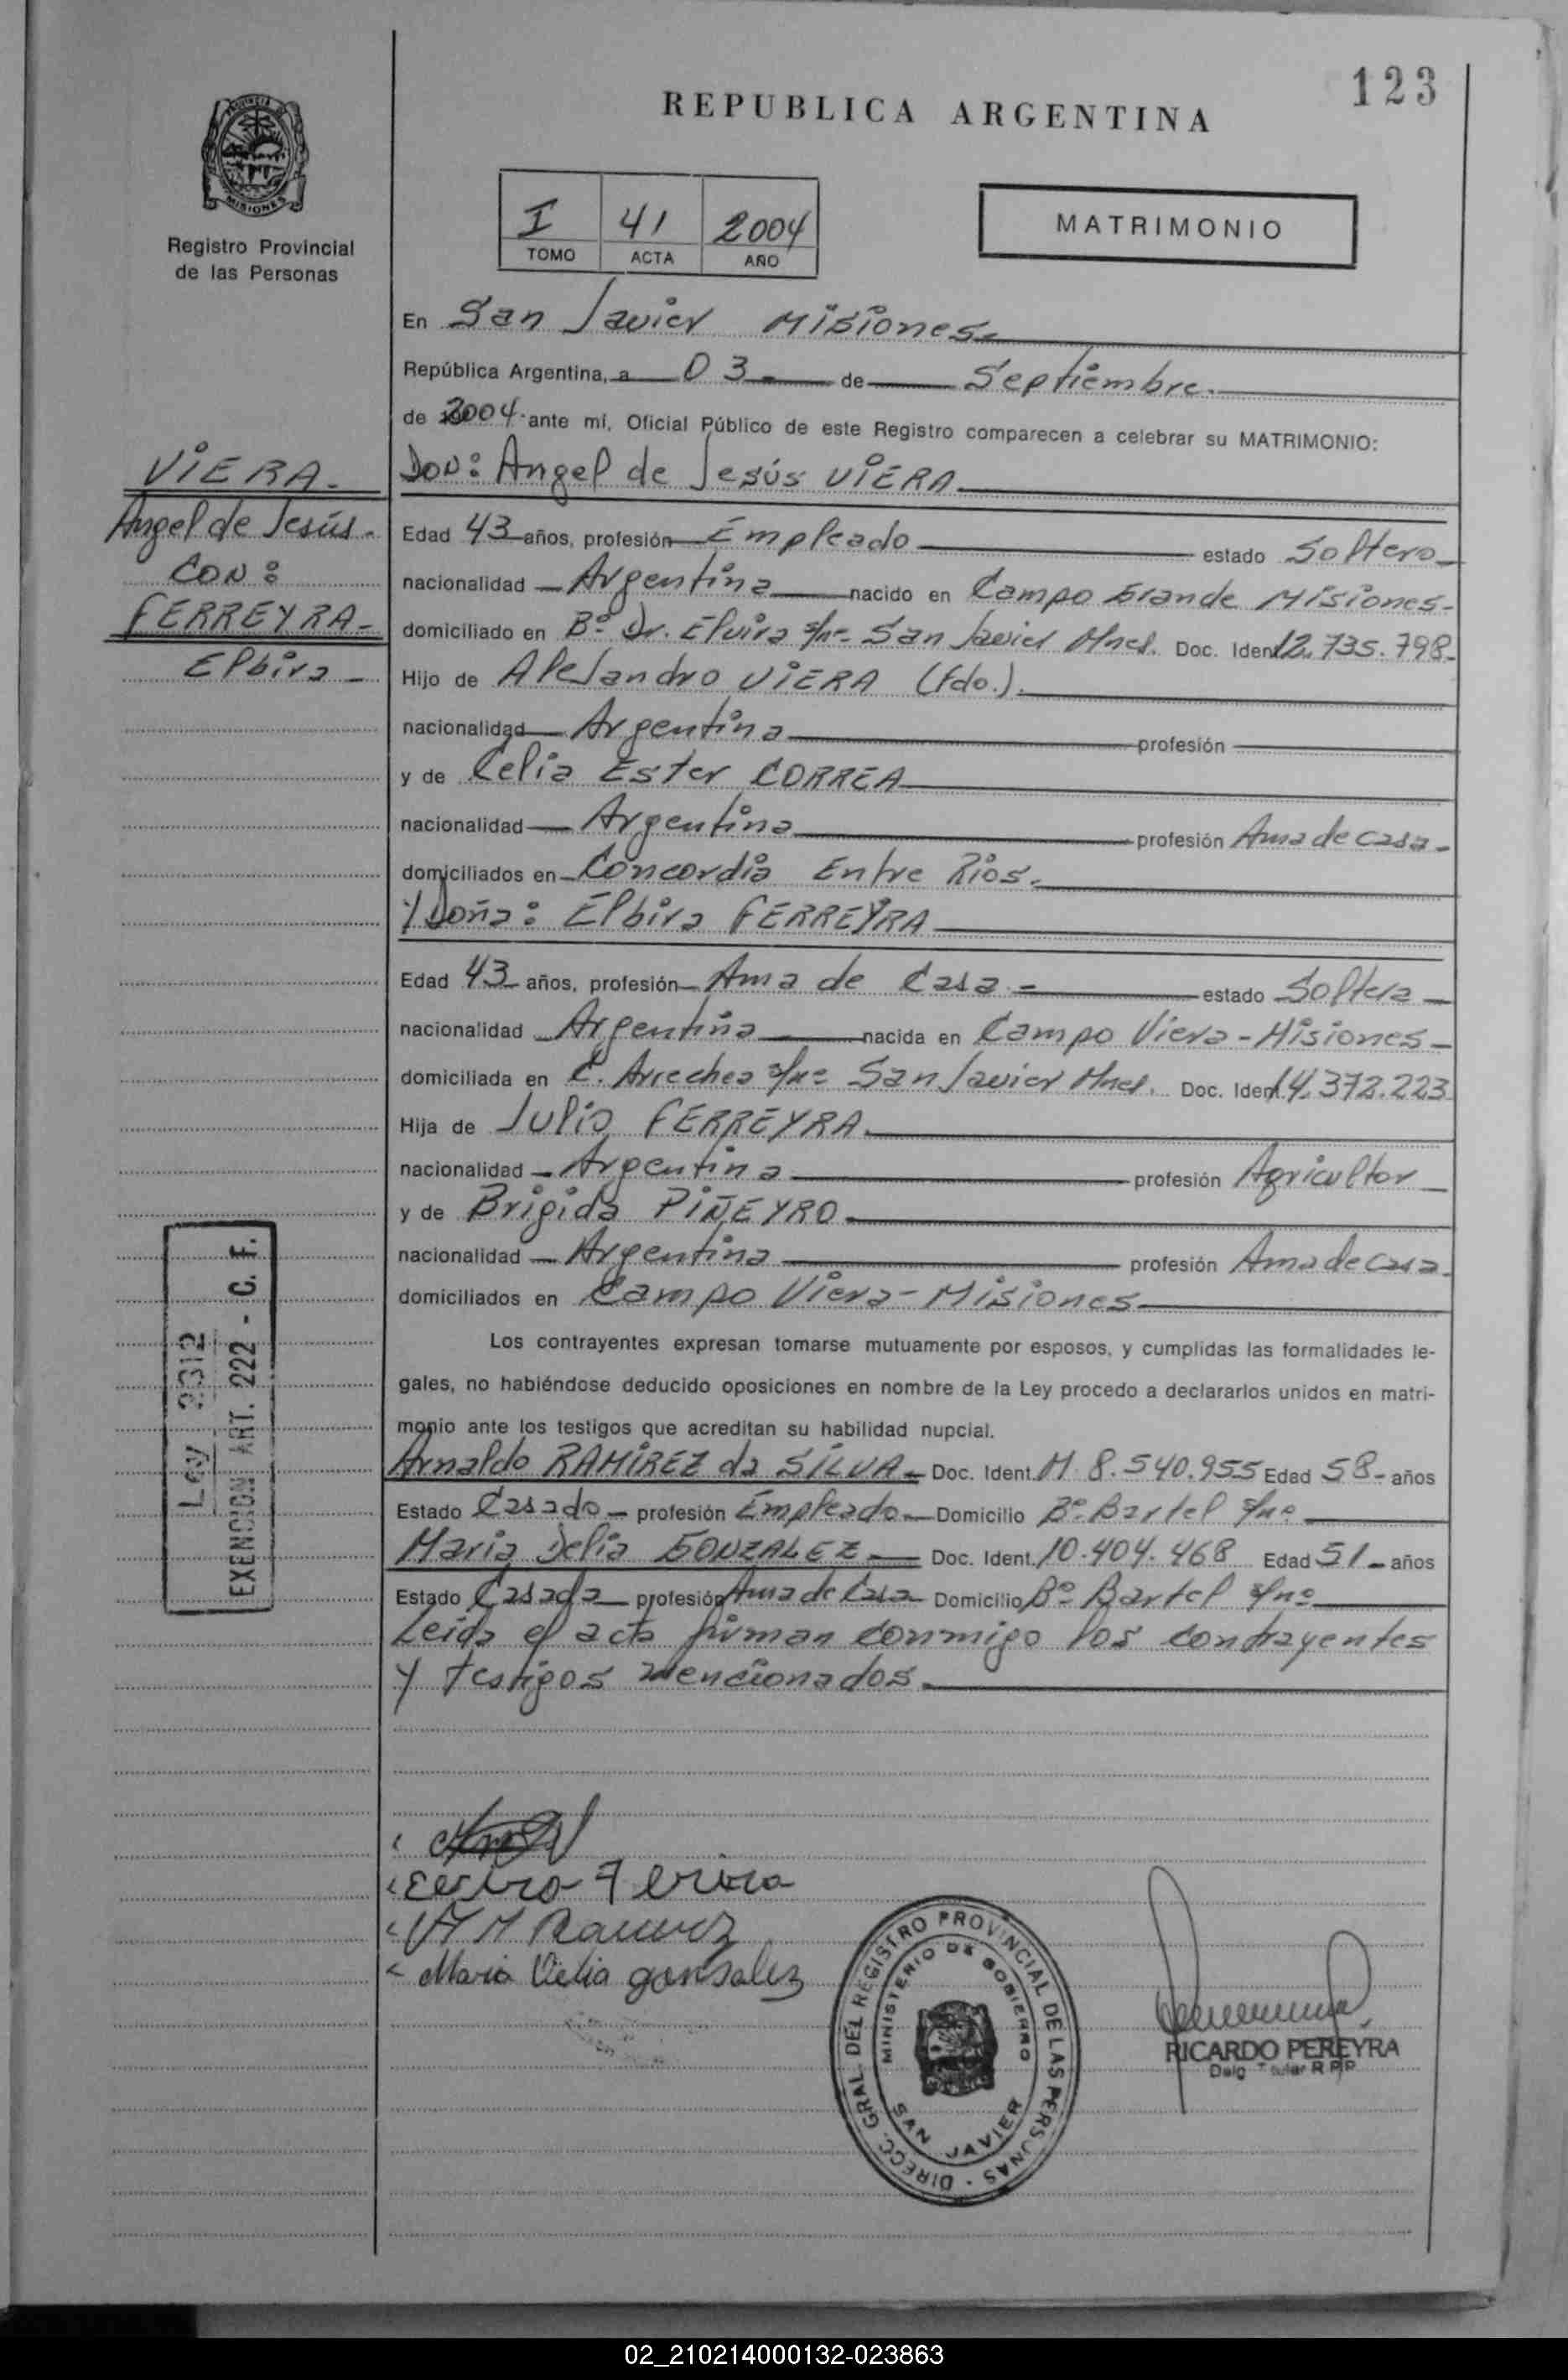 123
REPUBLICA ARGENTINA
PROVINCIA DE
MISIONES
Registro Provincial
de las Personas
I 41 2004
TOMO ACTA AÑO
MATRIMONIO
En San Javier Misiones.
República Argentina, a 03 de Septiembre.
de 2004 ante mí, Oficial Público de este Registro comparecen a celebrar su MATRIMONIO:
VIERA.
Angel de Jesús.
CON:
FERREYRA-
Elbira
DON: Angel de Jesús VIERA
Edad 43 años, profesión Empleado estado Soltero
nacionalidad Argentina nacido en Campo Grande Misiones-
domiciliado en Bº Dr. Elvira s/nº San Javier Mnes. Doc. Iden 12.735.798
Hijo de Alejandro VIERA (fdo.).
nacionalidad Argentina profesión
y de Celia Ester CORREA
nacionalidad Argentina profesión Ama de casa.
domiciliados en Concordia Entre Rios.
Y Doña: Elbira FERREYRA
Edad 43 años, profesión Ama de Casa estado Soltera
nacionalidad Argentina nacida en Campo Viera-Misiones
domiciliada en C. Arrechea s/nº San Javier Mnes. Doc. Iden 14.372.223
Hija de Julio FERREYRA.
nacionalidad Argentina profesión Agricultor
y de Brigida PIÑEYRO
nacionalidad Argentina profesión Ama de casa.
domiciliados en Campo Viera-Misiones
Los contrayentes expresan tomarse mutuamente por esposos, y cumplidas las formalidades le-
gales, no habiéndose deducido oposiciones en nombre de la Ley procedo a declararlos unidos en matri-
monio ante los testigos que acreditan su habilidad nupcial.
Arnaldo RAMIREZ da SILVA Doc. Ident. M 8.540.955 Edad 58 años
Estado Casado profesión Empleado Domicilio Bº Bartel s/nº
Maria Delia GONZALEZ Doc. Ident. 10.404.468 Edad 51 años
Estado Casada profesión Ama de Casa Domicilio Bº Bartel s/nº
Leida el acta firman conmigo los contrayentes
y testigos mencionados.
Ley 2312
EXENCION ART. 222 - C. F.
Ramirez
Maria Delia gonsalez
DIRECC. GRAL. DEL REGISTRO PROVINCIAL DE LAS PERSONAS
MINISTERIO DE GOBIERNO
SAN JAVIER
RICARDO PEREYRA
02_210214000132-023863